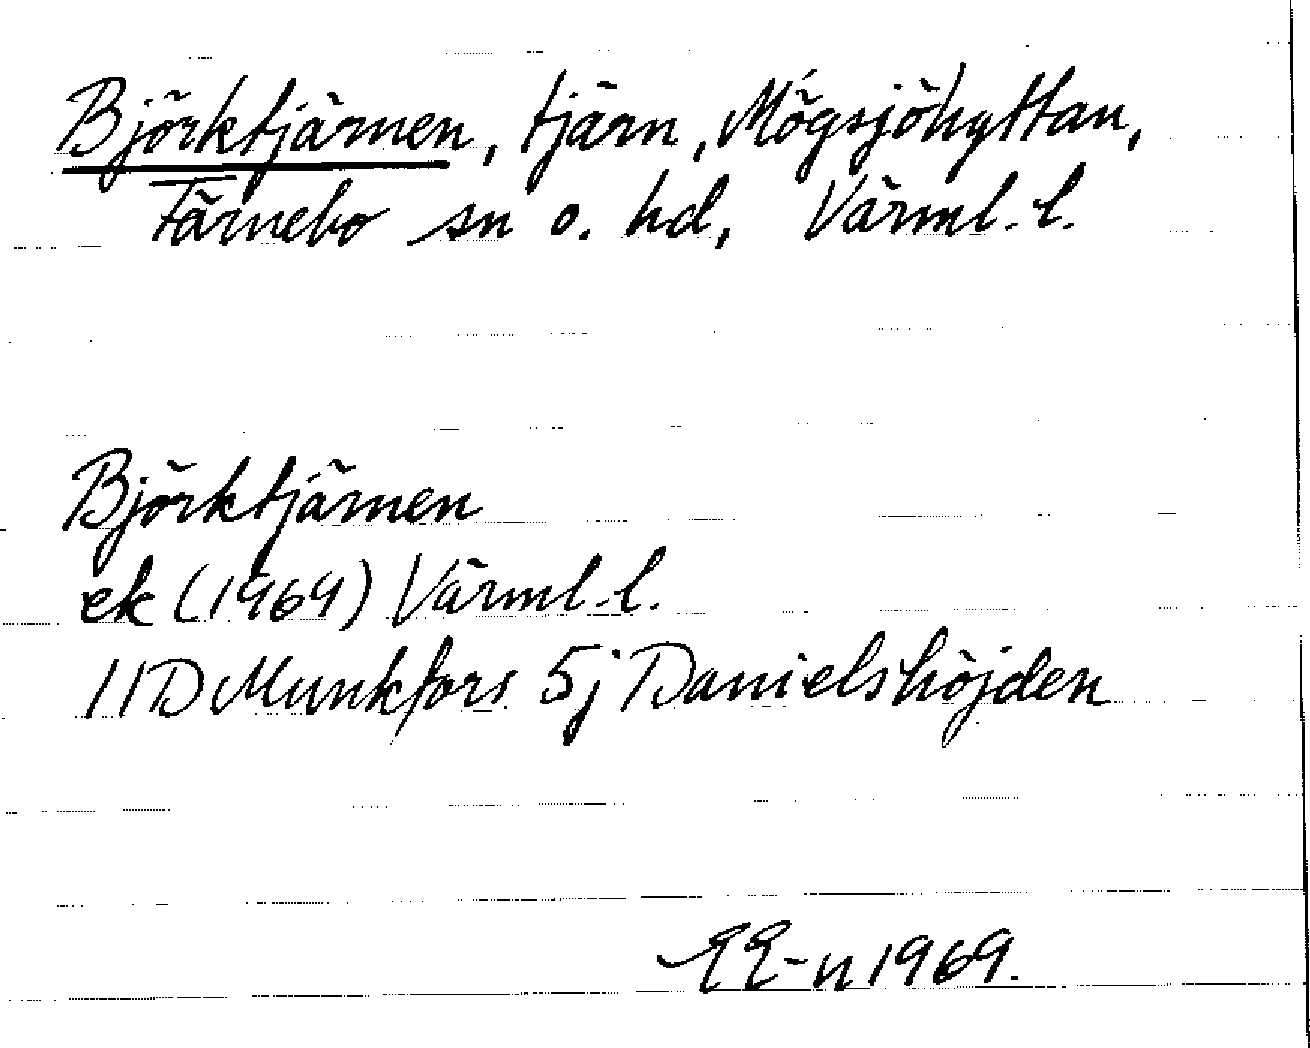 Björktjärnen, tjärn, Mögsjöhyttan,
Färnebo sn o. hd, Värml. l.
Björktjärnen
ek (1969) Värml. l.
11D Munkfors 5j Danielshöjden
EE-n 1969.